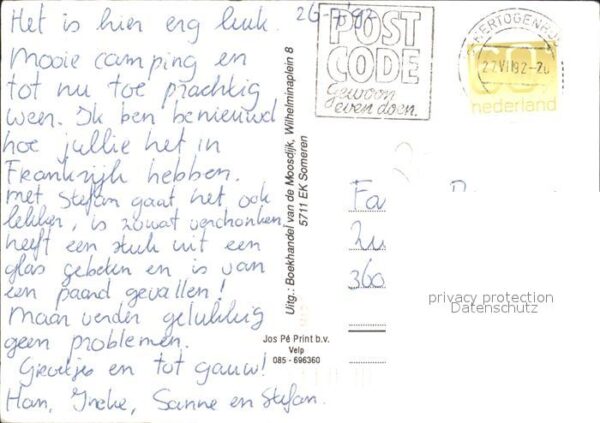 Het is hier erg leuk. 26-7-'92
Mooie camping en
tot nu toe prachtig
weer. Ik ben benieuwd
hoe jullie het in
Frankrijk hebben.
Met Stefan gaat het ook
lekker, is zowat verdronken,
heeft een stuk uit een
glas gebeten en is van
een paard gevallen!
Maar verder gelukkig
geen problemen.
Groetjes en tot gauw!
Han, Ineke, Sanne en Stefan.
POST
CODE
Gewoon
even doen.
HERTOGENB
27.VII.92-20
60
nederland
Uitg.: Boekhandel van de Moosdijk, Wilhelminaplein 8
5711 EK Someren
Jos Pé Print b.v.
Velp
085 - 696360
Fa
360
privacy protection
Datenschutz